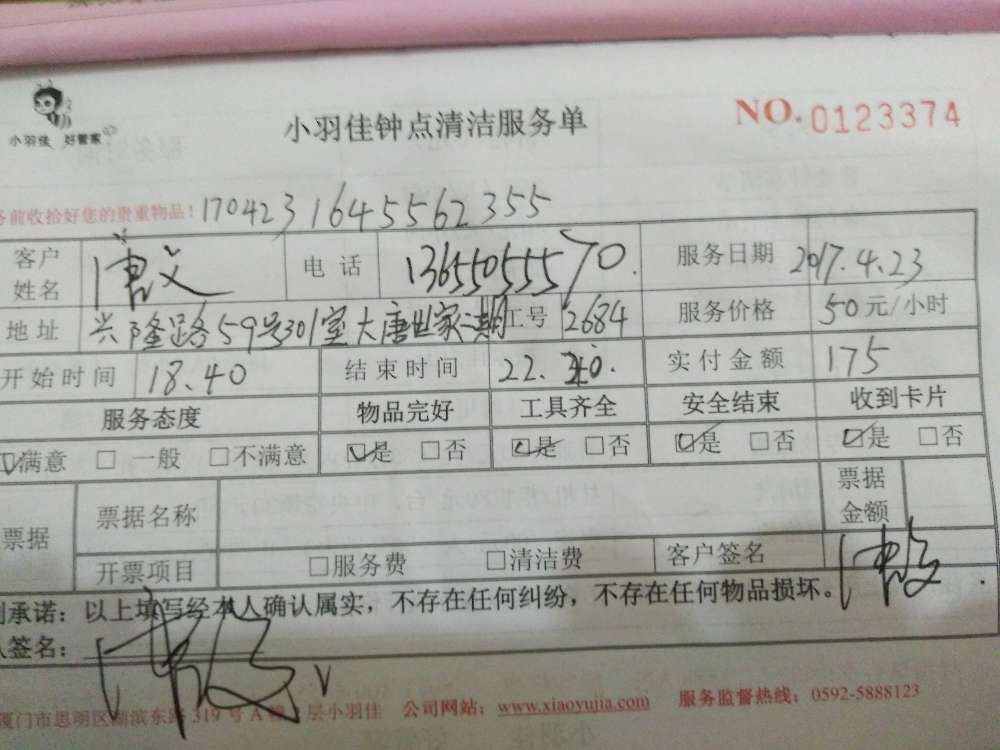 小羽佳 好管家
小羽佳钟点清洁服务单
NO. 0123374
务前收拾好您的贵重物品! 170423164556 2355
客户姓名 电话 13655055570. 服务日期 2017.4.23
地址 兴隆路59号301室大唐世家 工号 2684 服务价格 50元/小时
开始时间 18.40 结束时间 22. 实付金额 175
服务态度 物品完好 工具齐全 安全结束 收到卡片
☑满意 □一般 □不满意 ☑是 □否 ☑是 □否 ☑是 □否 ☑是 □否
票据 票据名称 票据金额
开票项目 □服务费 □清洁费 客户签名
承诺：以上填写经本人确认属实，不存在任何纠纷，不存在任何物品损坏。
签名：
厦门市思明区湖滨东路319号A 层小羽佳 公司网站：www.xiaoyujia.com 服务监督热线：0592-5888123